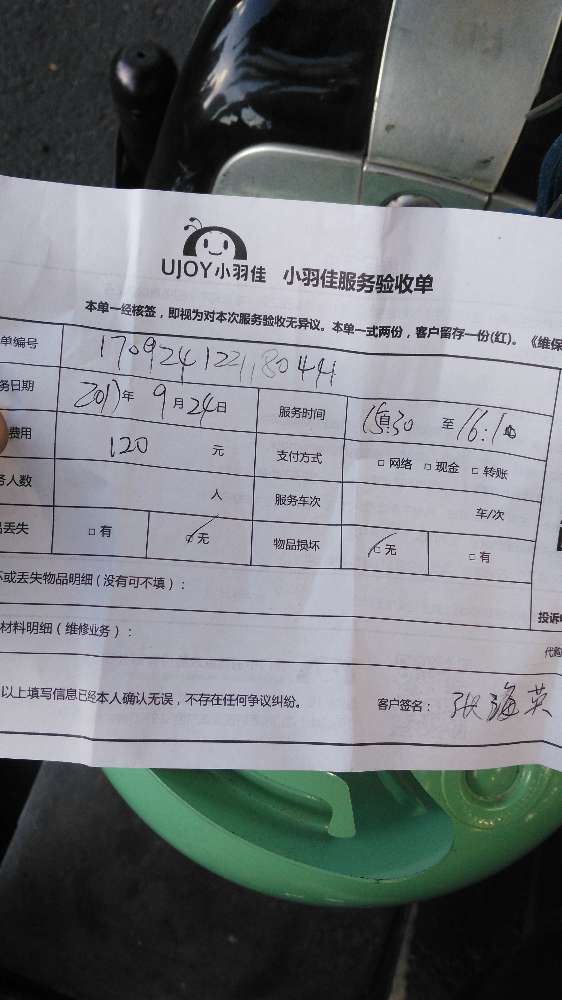 UJOY小羽佳 小羽佳服务验收单
本单一经核签，即视为对本次服务验收无异议。本单一式两份，客户留存一份(红)。《维保
单编号
务日期 2017年 9月24日 服务时间 15:30 至
费用 120 元 支付方式 □ 网络 □ 现金 □ 转账
务人数 人 服务车次 车/次
品丢失 □ 有 □ 无 物品损坏 □ 无 □ 有
坏或丢失物品明细（没有可不填）：
投诉
材料明细（维修业务）：
代购
以上填写信息已经本人确认无误，不存在任何争议纠纷。 客户签名： 张海英